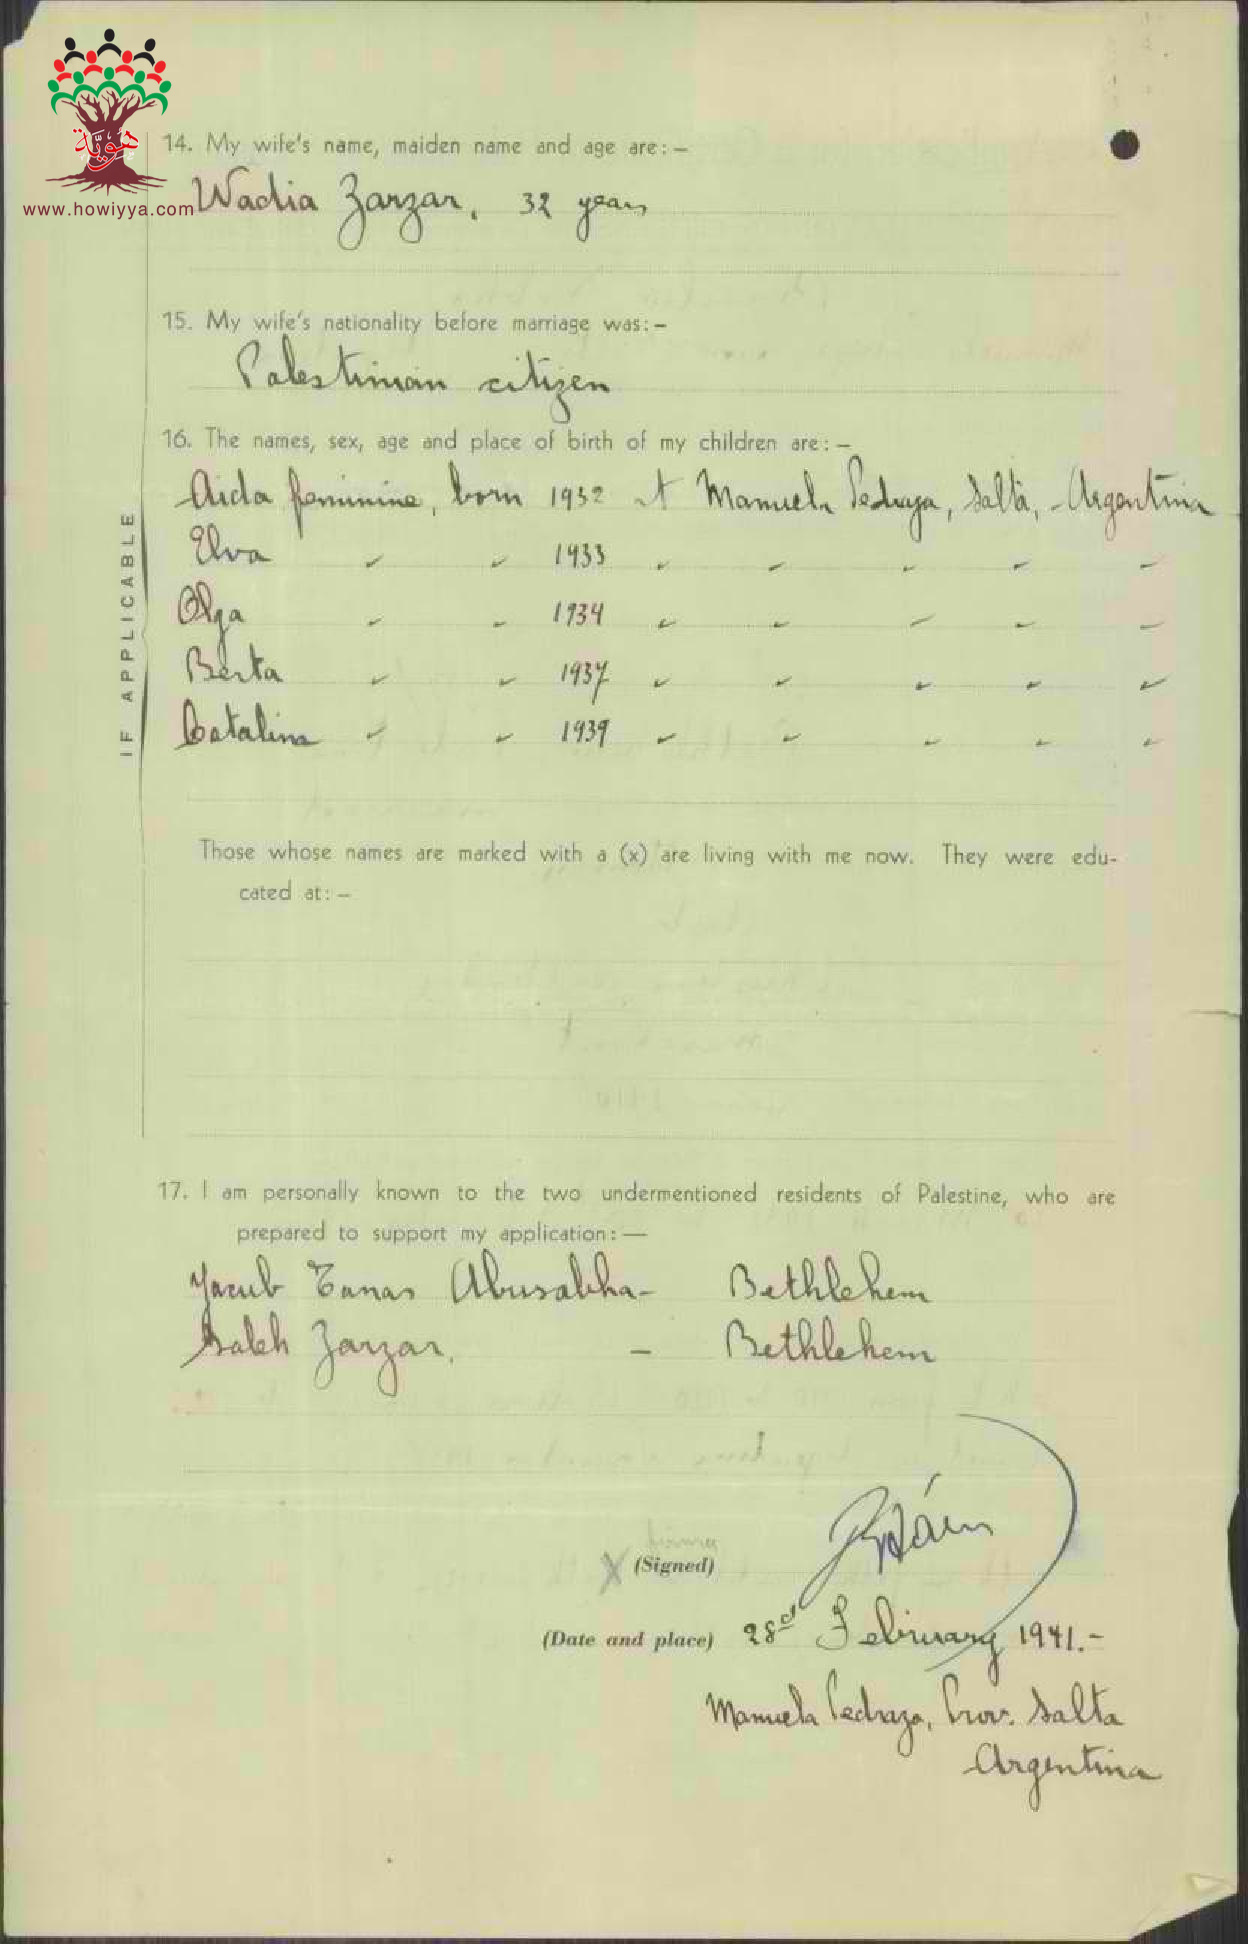 هَوِيَّة
www.howiyya.com
14. My wife's name, maiden name and age are:—
Wadia Zarzar, 32 years
15. My wife's nationality before marriage was:—
Palestinian citizen
16. The names, sex, age and place of birth of my children are:—
Aida feminine, born 1932 at Manuela Pedraza, Salta, Argentina
Elva " " 1933 " " " " "
Olga " " 1934 " " " " "
Berta " " 1937 " " " " "
Catalina " " 1939 " " " " "
IF APPLICABLE
Those whose names are marked with a (x) are living with me now. They were edu-
cated at:—
17. I am personally known to the two undermentioned residents of Palestine, who are
prepared to support my application:—
Jacub Tanas Abusabha - Bethlehem
Saleh Zarzar. - Bethlehem
firma
X (Signed)
(Date and place) 28d February 1941.-
Manuela Pedraza, Prov. Salta
Argentina